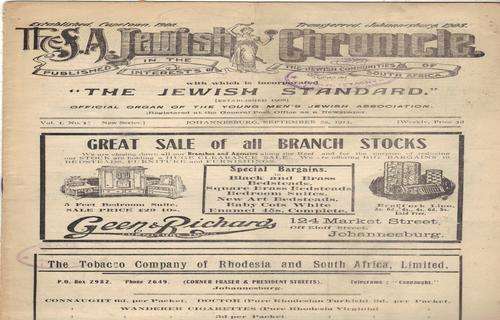 Established, Capetown, 1902.
Transferred, Johannesburg, 1903.
The S.A. Jewish Chronicle.
PUBLISHED IN THE INTERESTS OF THE JEWISH COMMUNITIES OF SOUTH AFRICA
with which is incorporated
"THE JEWISH STANDARD."
OFFICIAL ORGAN OF THE YOUNG MEN'S JEWISH ASSOCIATION.
(Registered at the General Post Office as a Newspaper
JOHANNESBURG, SEPTEMBER
[Weekly, Price 3d
GREAT SALE of all BRANCH STOCKS
our STOCK are holding a HUGE CLEARANCE SALE. We are offering BARGAINS in
BEDSTEADS, FURNITURE and FURNISHINGS
Special Bargains.
Black and Brass
Bedsteads,
Square Brass Bedsteads
Bedroom Suites,
New Art Bedsteads,
Baby Cots White
Enamel 45s. Complete.
5 Feet Bedroom Suite,
SALE PRICE £29 10-
Geen & Richards
124 Market Street,
Off Eloff Street,
Johannesburg.
The Tobacco Company of Rhodesia and South Africa, Limited.
P.O. Box 2982. Phone 2649. (CORNER FRASER & PRESIDENT STREETS). Telegrams: "Connaught."
Johannesburg.
CONNAUGHT 6d. per Packet. DOCTOR (Pure Rhodesian Turkish) 3d. per Packet.
WANDERER CIGARETTES (Pure Rhodesia Virginia)
3d per Packet